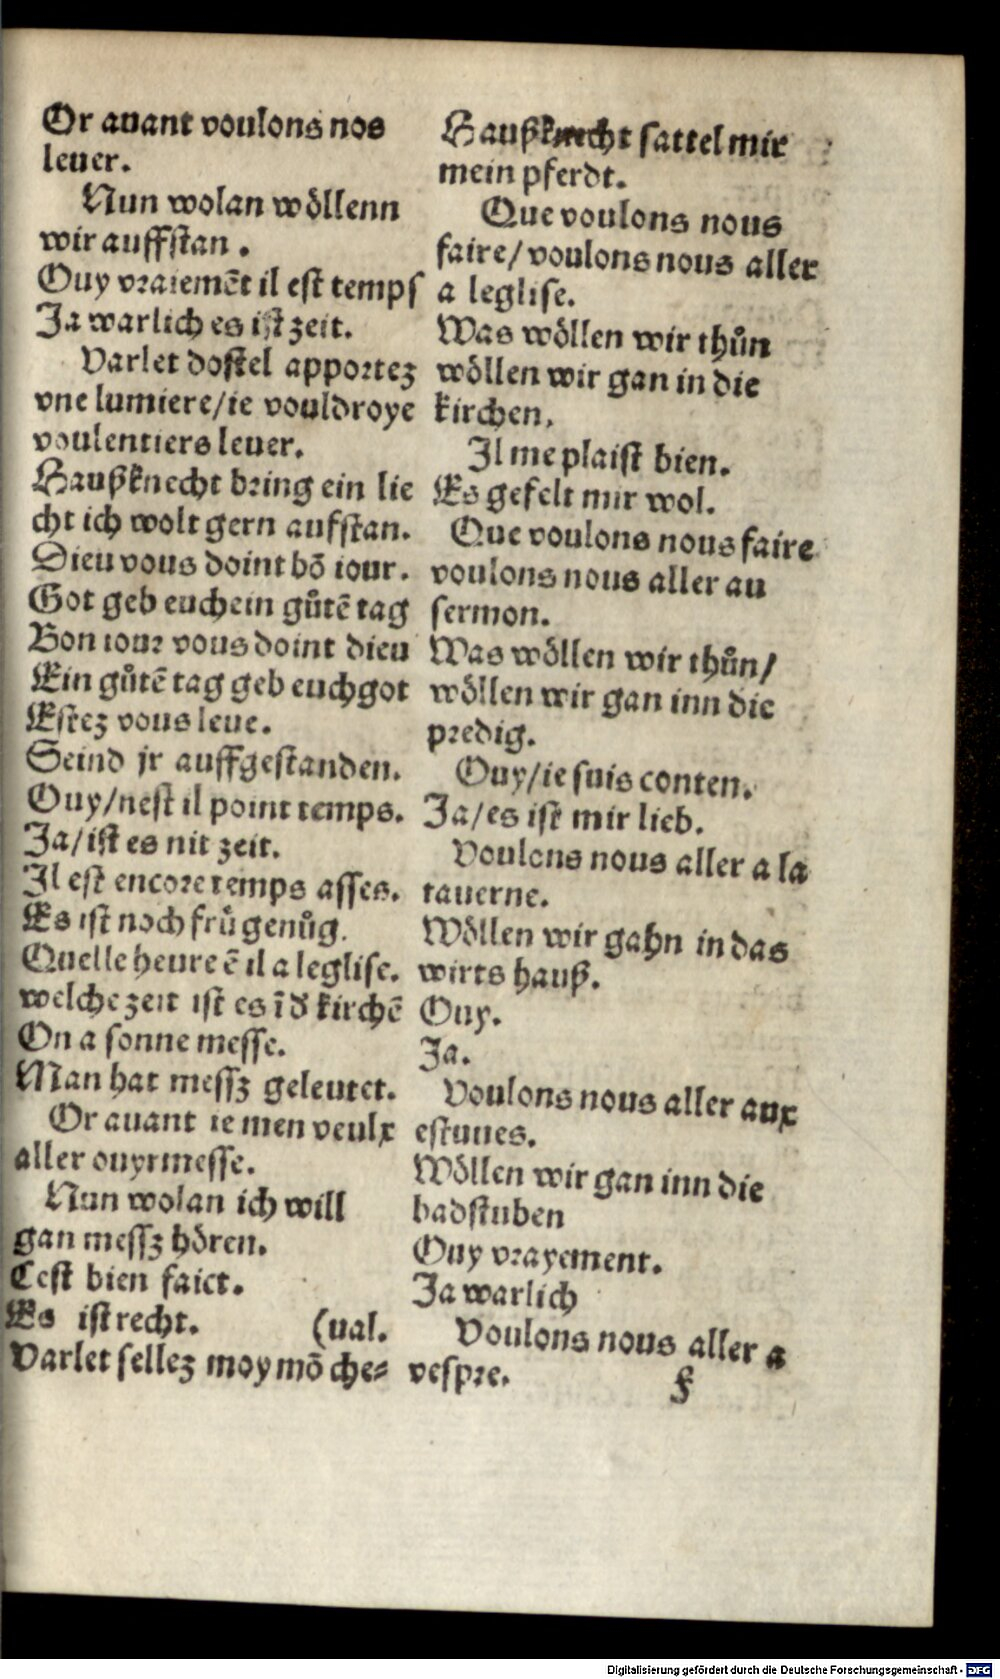 Or auant voulons nos
leuer.
Nun wolan wöllenn
wir auffstan.
Ouy vraiemēt il est temps
Ja warlich es ist zeit.
Varlet dostel apportez
vne lumiere/ie vouldroye
voulentiers leuer.
Haußknecht bring ein lie
cht ich wolt gern aufstan.
Dieu vous doint bō iour.
Got geb euch ein gůtē tag
Bon iour vous doint dieu
Ein gůtē tag geb euch got
Estez vous leue.
Seind jr auffgestanden.
Ouy/nest il point temps.
Ja/ist es nit zeit.
Il est encore temps asses.
Es ist noch frů genůg.
Quelle heure ē il a leglise.
welche zeit ist es ī d̄ kirchē
On a sonne messe.
Man hat messz geleutet.
Or auant ie men veulx
aller ouyr messe.
Nun wolan ich will
gan messz hören.
Cest bien faict.
Es ist recht. (ual.
Varlet sellez moy mō che-
Haußknecht sattel mir
mein pferdt.
Que voulons nous
faire/voulons nous aller
a leglise.
Was wöllen wir thůn
wöllen wir gan in die
kirchen.
Il me plaist bien.
Es gefelt mir wol.
Que voulons nous faire
voulons nous aller au
sermon.
Was wöllen wir thůn/
wöllen wir gan inn die
predig.
Ouy/ie suis conten.
Ja/es ist mir lieb.
Voulons nous aller a la
tauerne.
Wöllen wir gahn in das
wirts hauß.
Ouy.
Ja.
Voulons nous aller aux
estuues.
Wöllen wir gan inn die
badstuben
Ouy vrayement.
Ja warlich
Voulons nous aller a
vespre.
f
Digitalisierung gefördert durch die Deutsche Forschungsgemeinschaft - DFG